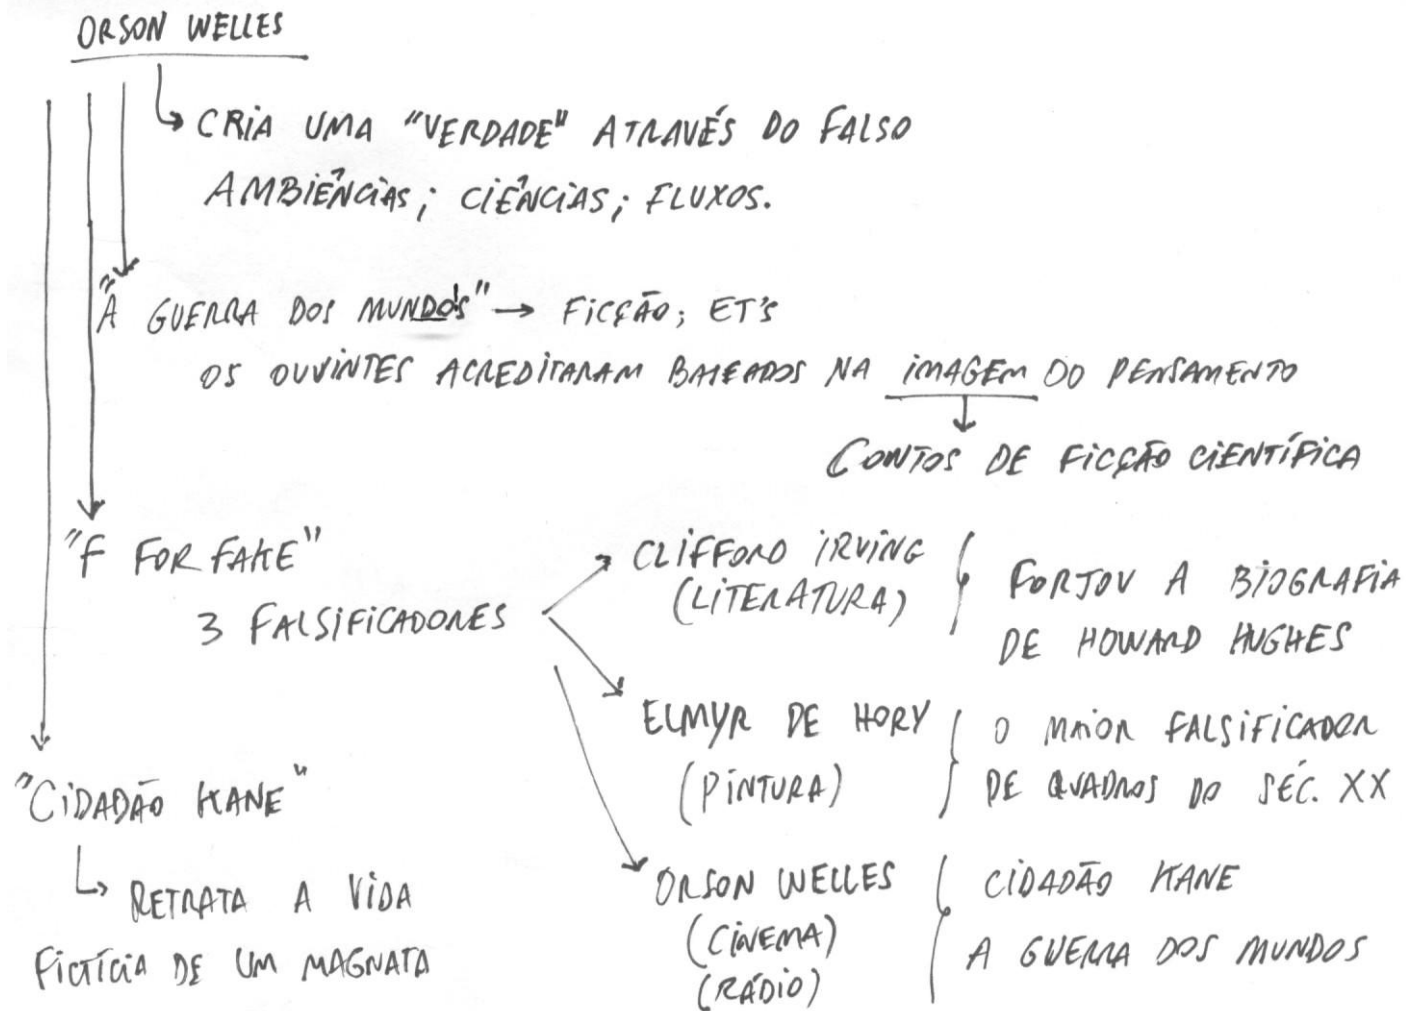 ORSON WELLES
CRIA UMA "VERDADE" ATRAVÉS DO FALSO
AMBIÊNCIAS; CIÊNCIAS; FLUXOS.
"A GUERRA DOS MUNDOS" → FICÇÃO; ET'S
OS OUVINTES ACREDITARAM BASEADOS NA IMAGEM DO PENSAMENTO
CONTOS DE FICÇÃO CIENTÍFICA
"F FOR FAKE"
3 FALSIFICADORES
CLIFFORD IRVING
(LITERATURA)
FORJOU A BIOGRAFIA
DE HOWARD HUGHES
ELMYR DE HORY
(PINTURA)
O MAIOR FALSIFICADOR
DE QUADROS DO SÉC. XX
ORSON WELLES
(CINEMA)
(RÁDIO)
CIDADÃO KANE
A GUERRA DOS MUNDOS
"CIDADÃO KANE"
RETRATA A VIDA
FICTÍCIA DE UM MAGNATA